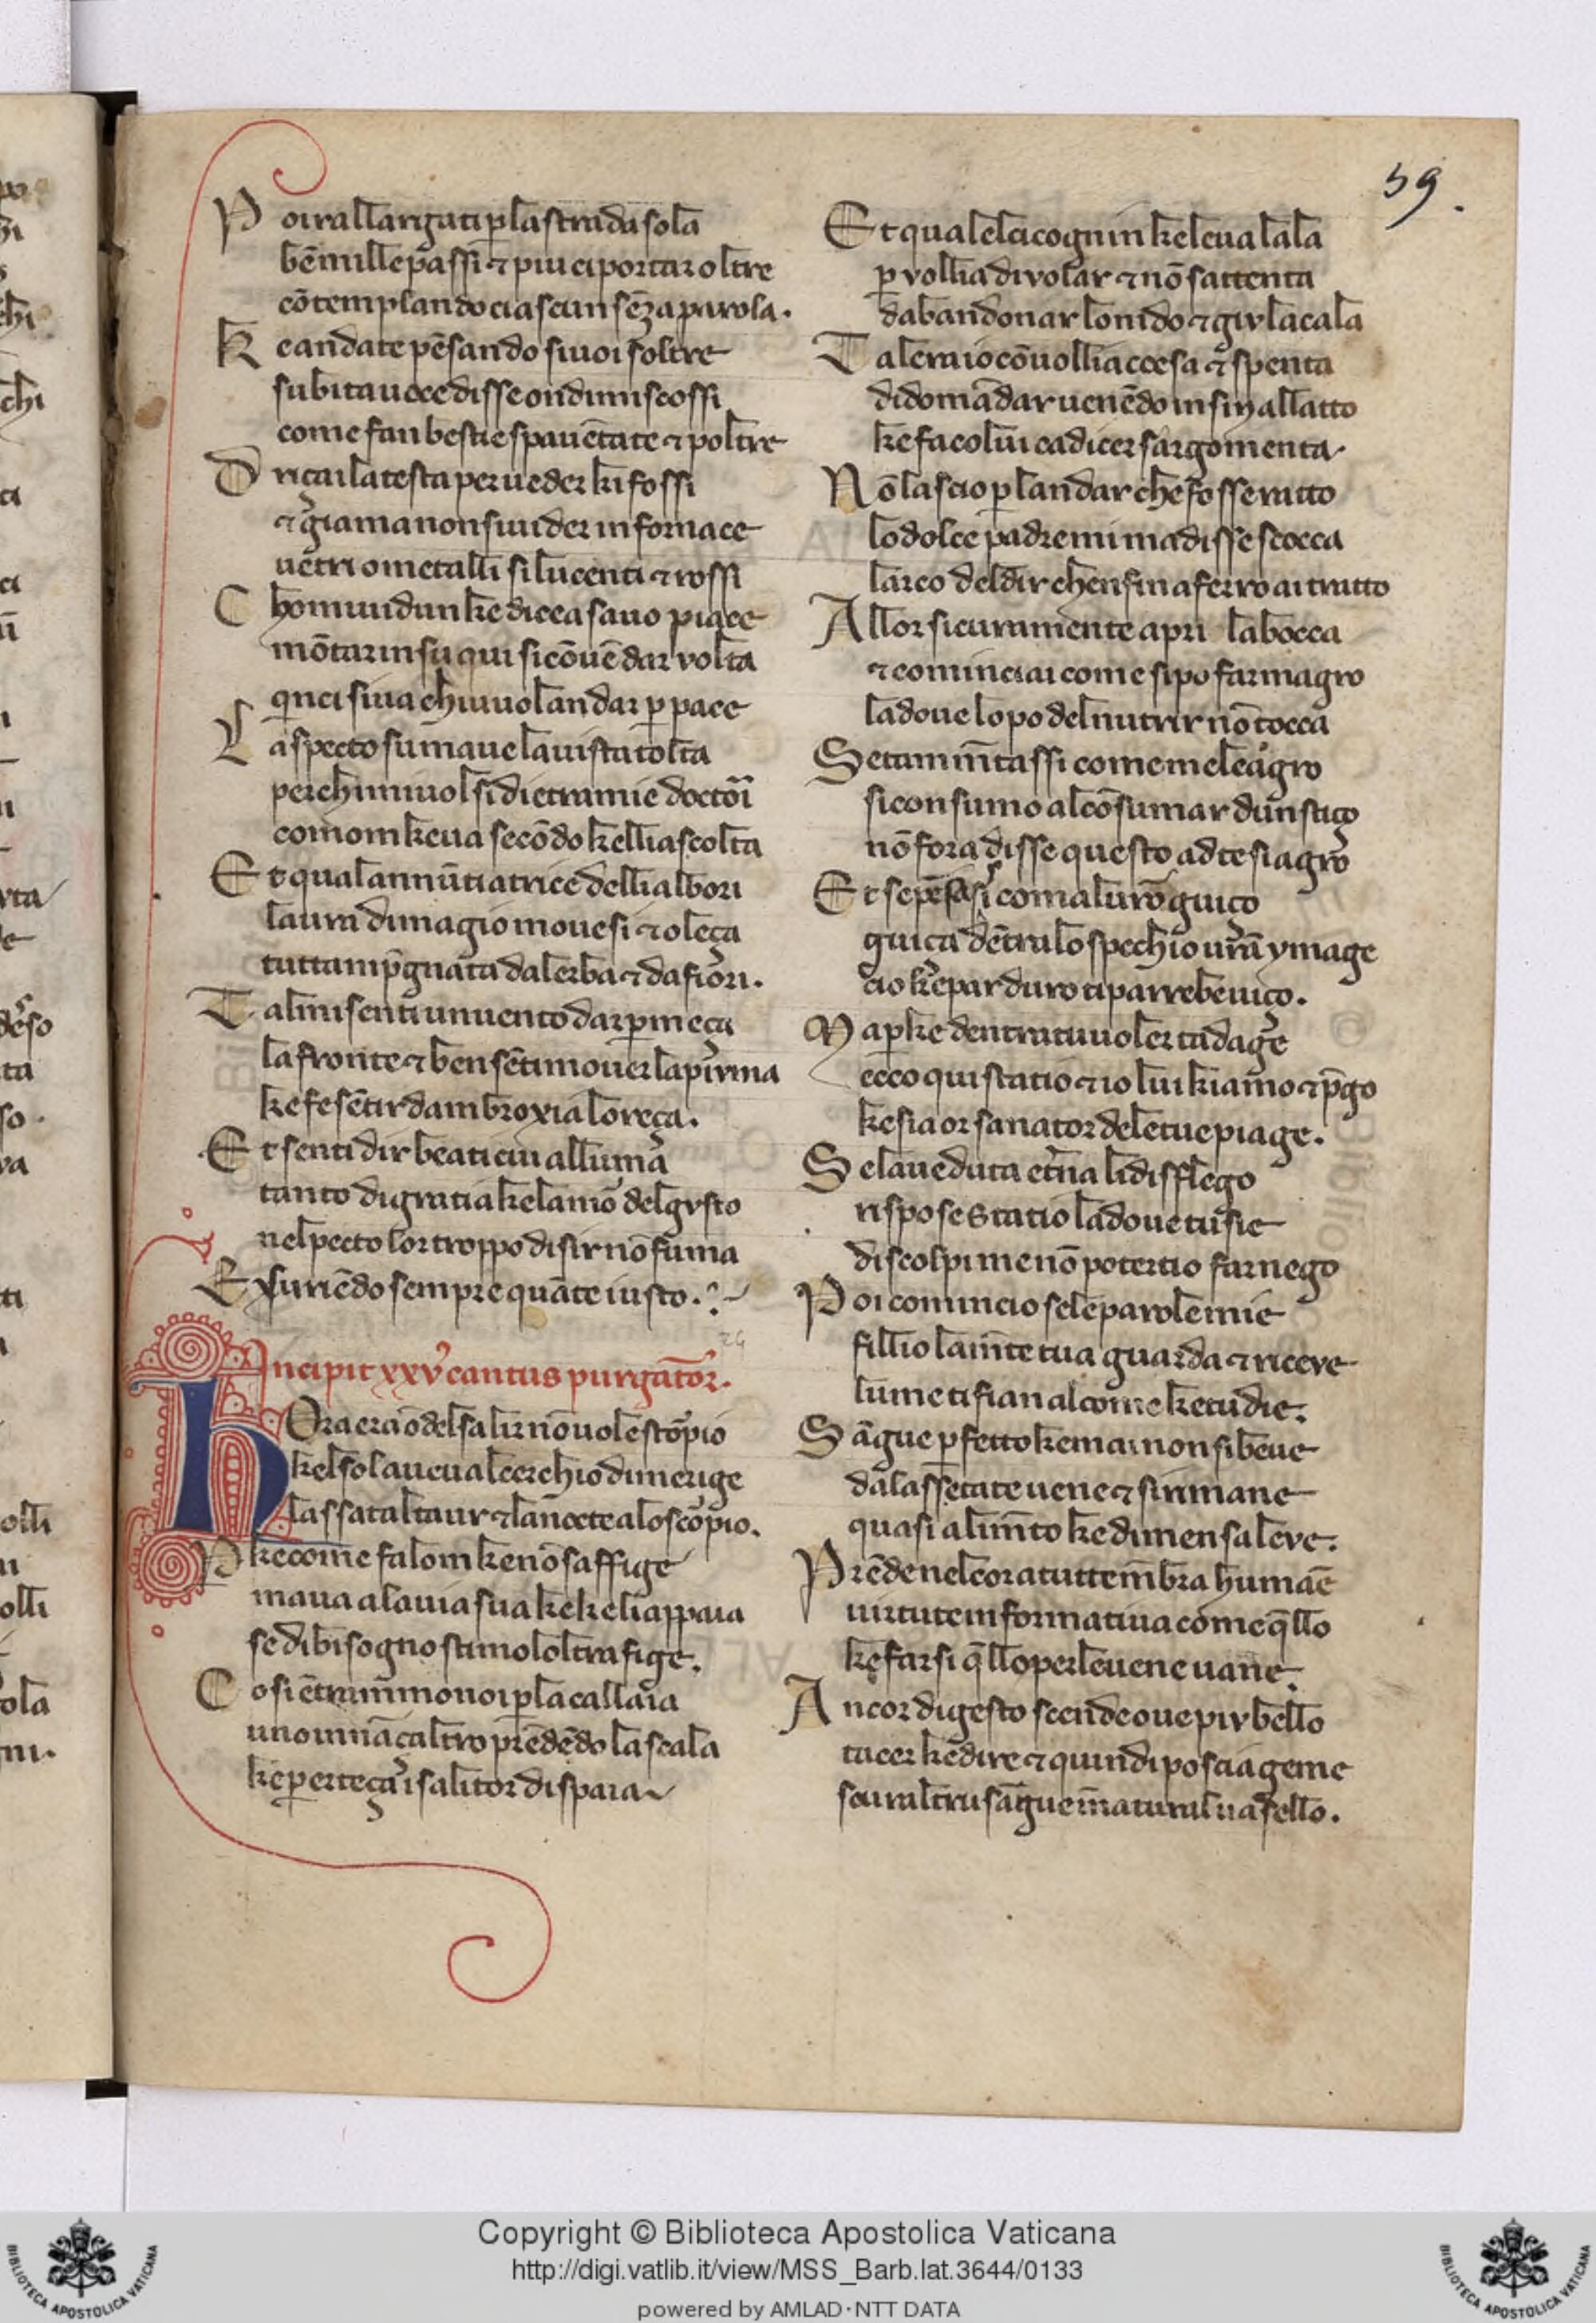 59.
Poi rallargati p̄ la strada sola
bē mille passi ⁊ piu ci portar oltre
cōtemplando ciascun sēza parola.
Ke andate pēsando si uoi sol tre
subita uoce disse ond umi scossi
come fan bestie spauētate ⁊ poltre
Driçai la testa per ueder ki fossi
⁊ gia ma non si uider in fornace
uetri o metalli si lucenti ⁊ rossi
Chom ui dun ke dicea sa uo piace
mōtar in su qui si cōuē dar volta
q̄nci si ua chi uuol andar p̄ pace
Laspecto su mauela uista tolta
perchi mi uolsi dietra mie doctori
com om ke ua secōdo kelli ascolta
Et qual annūtiatrice delli albori
laura di magio mouesi ⁊ oleça
tutta imp̄gnata dalerba ⁊ da fiori.
Tal mi senti un uento dar p̄ meça
la fronte ⁊ ben sēti mouer la piuma
ke fe sētir dambroxia loreça.
Et senti dir beati cui alluma
tanto di gratia ke lamo del gusto
nel pecto lor troppo disir nō fuma
Exuriēdo sempre quāte iusto.
24
Incipit xxv cantus purgator̄.
hOra era ōdel salir nō uole stopio
kel sol aueua l cerchio di merige
lassatal taur ⁊ la nocte alo scorpio.
Pke come fa lom ke nō saffige
ma ua ala uia sua ke ke li appaia
se di bisogno stimolo l trafige.
Cosi ētrammo noi p̄ la callaia
uno innāçaltro prēdēdo la scala
ke per erteça i salitor dispaia
Et quale l cicognin ke leua lala
p̄ vollia di volar ⁊ nō sattenta
dabandonar lo nido ⁊ giv la cala
Tal era io cō uollia accesa ⁊ spenta
di domādar uenēdo insin allatto
ke fa colui ca dicer sargomenta.
Nō lascio p̄ landar che fosse ratto
lo dolce padre mi ma disse scocca
larco del dir chensin a ferro ai tratto
Allor sicuramente apri la bocca
⁊ cominciai come si po far magro
la doue lopo del nutrir nō tocca
Se tammētassi come meleagro
si consumo al cōsumar dun stiço
nō fora disse questo ad te si agro
Et se pēsasi coma l uro guiço
guiça dētra lo spechio ur̄a ymage
cio ke par duro ti parrebe uiço.
Ma p̄ke dentra tu uoler tadage
ecco qui statio ⁊ io lui kiamo ⁊ p̄go
ke sia or sanator dele tue piage.
Se la ueduta et̄na li disflego
rispose statio la doue tu sie
discolpi me nō potertio far nego
Poi comincio se le parole mie
fillio la mīte tua guarda ⁊ riceve
lume ti fian al come ke tu die.
Sāgue p̄fetto ke mai non si beue
dalassetate uene ⁊ si rimane
quasi alimēto ke di mensa leve.
Prēde nel cor a tutte mēbra humāe
uirtute informatiua come q̄llo
ke farsi q̄llo per le uene uane.
Ancor digesto scende oue piv bello
tacer ke dire ⁊ quindi poscia geme
soural trui sāgue ī natural uasello.
Copyright © Biblioteca Apostolica Vaticana
http://digi.vatlib.it/view/MSS_Barb.lat.3644/0133
powered by AMLAD·NTT DATA
BIBLIOTECA APOSTOLICA VATICANA
BIBLIOTECA APOSTOLICA VATICANA